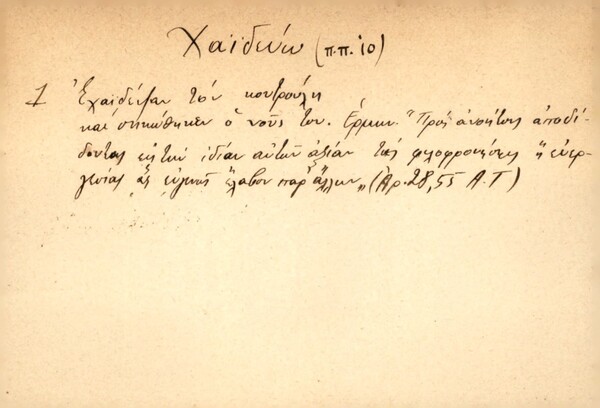 Χαϊδεύω (π.π. ιο)
1 Ἐχαϊδέψαν τὸν κουτρούλη
καὶ σηκώθηκεν ὁ νοῦς του. Ἑρμην. "Πρὸς ἀνοήτους ἀποδί-
δοντας εἰς τὴν ἰδίαν αὐτῶν ἀξίαν τὰς φιλοφρονήσεις ἢ εὐερ-
γεσίας ἃς εὐγενῶς ἔλαβον παρ' ἄλλων" (Ἀρ. 28,55 Α.Τ)